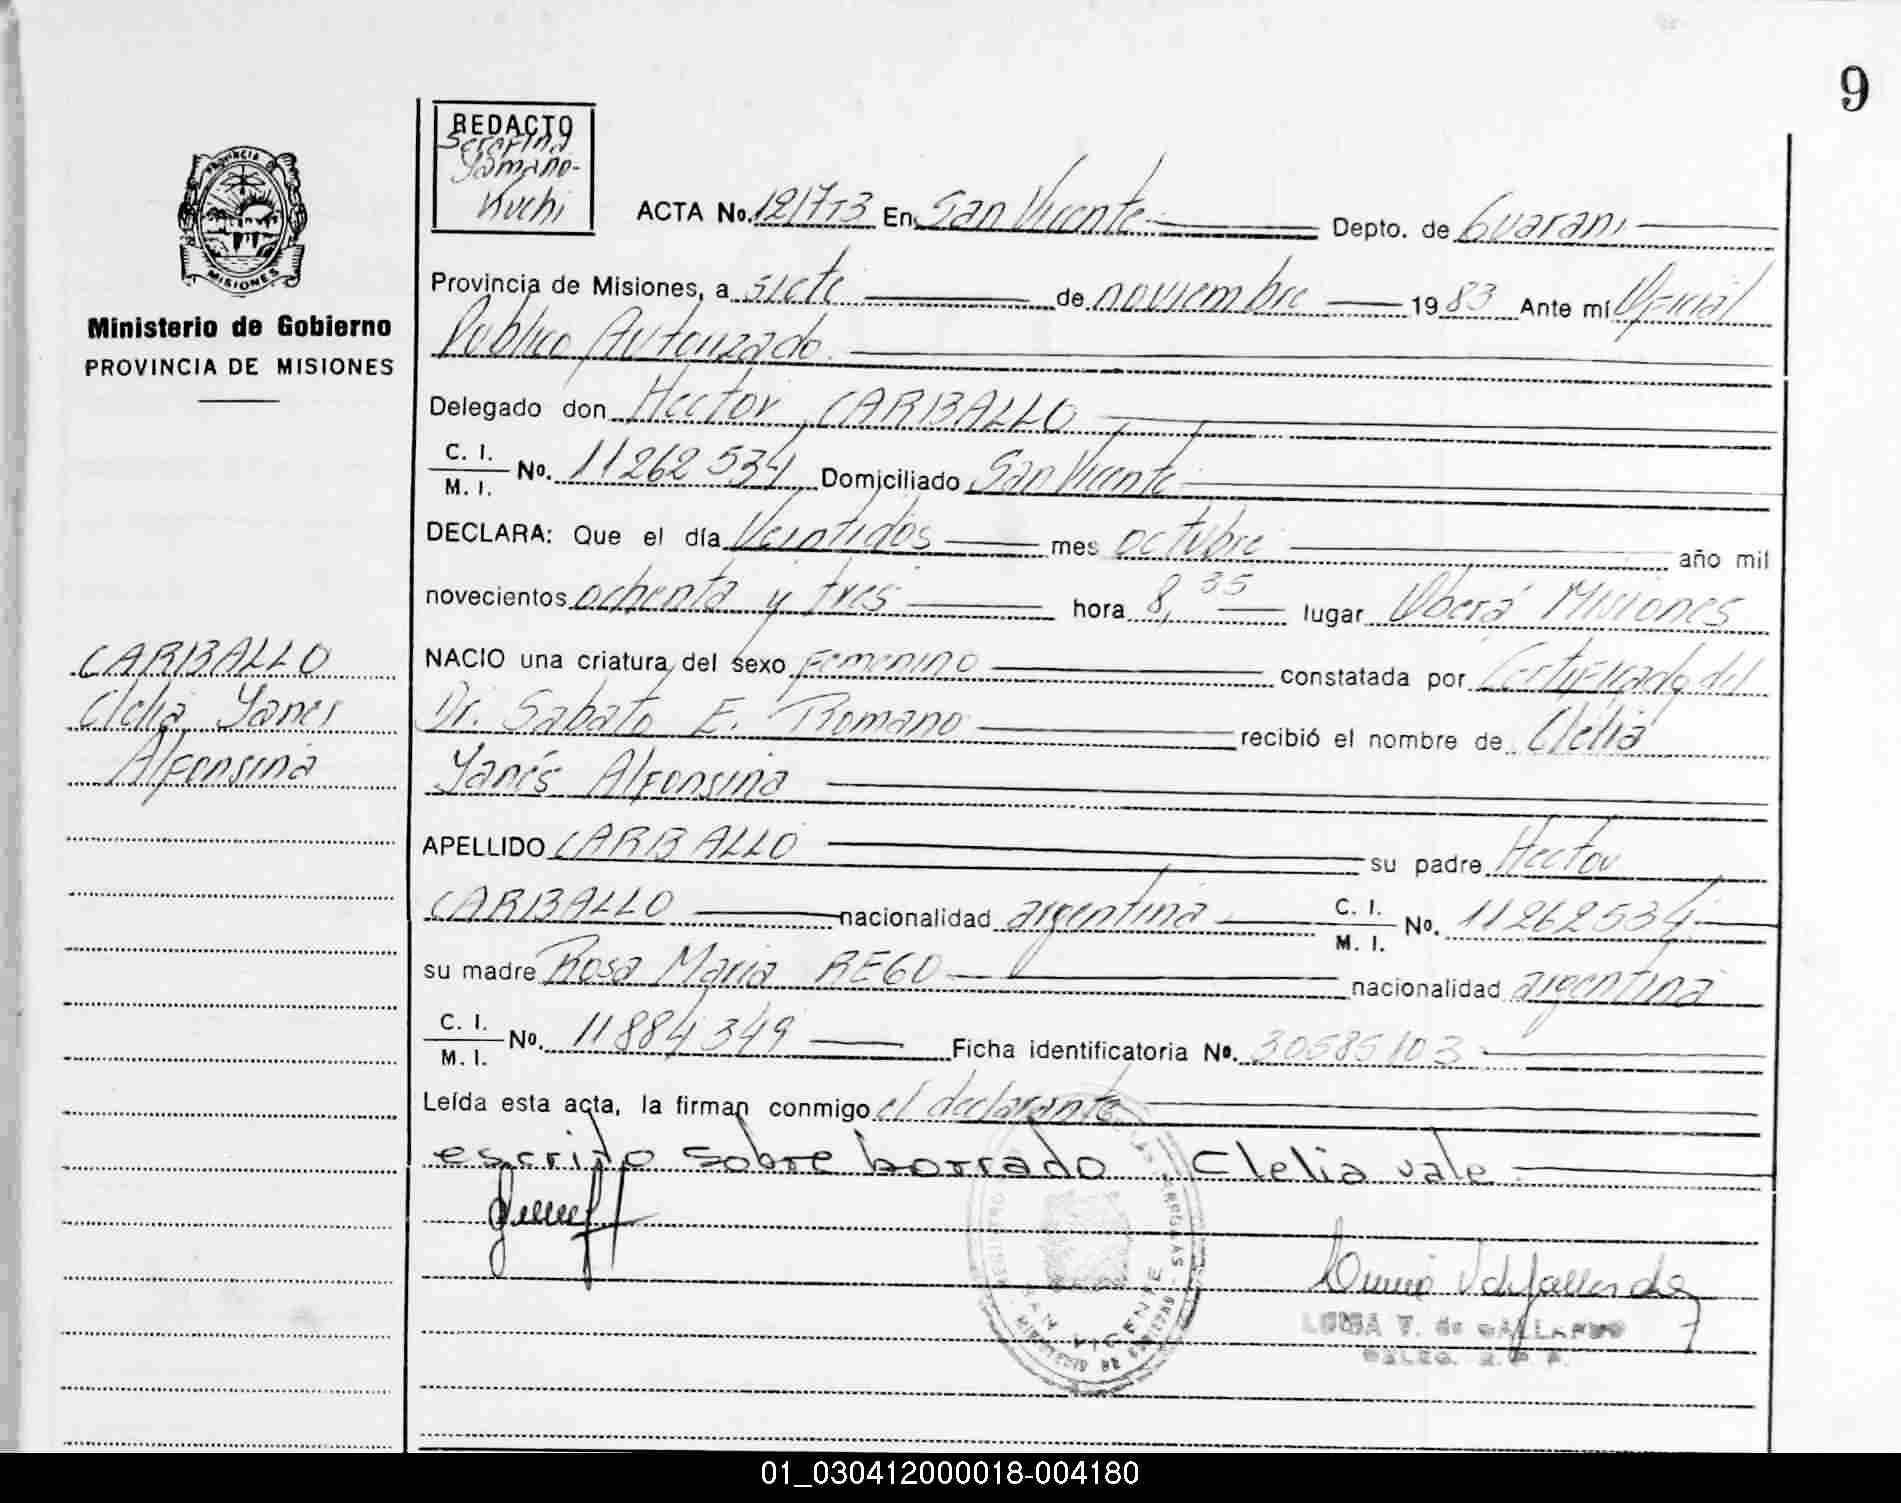 9
REDACTO
Serafina
Yamaño-
Kuchi
PROVINCIA DE
MISIONES
Ministerio de Gobierno
PROVINCIA DE MISIONES
ACTA No. En San Vicente Depto. de Guaraní
Provincia de Misiones, a siete de noviembre 1983 Ante mí Oficial
Publico Autorizado.
Delegado don Hector CARBALLO
C. I.
M. I. No. 11262534 Domiciliado San Vicente
DECLARA: Que el día Veintidos mes octubre año mil
novecientos ochenta y tres hora 8,35 lugar Oberá Misiones
NACIO una criatura del sexo femenino constatada por Certificado del
Dr. Sabato E. Romano recibió el nombre de Clelia
Yanés Alfonsina
APELLIDO CARBALLO su padre Hector
CARBALLO nacionalidad argentina C. I.
M. I. No. 11262534
su madre Rosa Maria REGO nacionalidad argentina
C. I.
M. I. No. 11884349 Ficha identificatoria No. 30585103
Leída esta acta, la firman conmigo el declarante
escrito sobre borrado Clelia vale
CARBALLO
Clelia Yanes
Alfonsina
SAN VICENTE
LUISA V. de GALLARDO
DELEG. R. P.
01_030412000018-004180